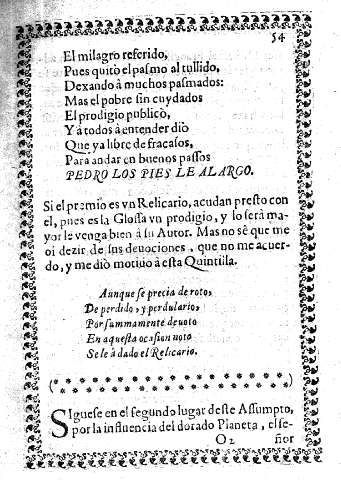 54
El milagro referido,
Pues quitò el pasmo al tullido,
Dexando à muchos pasmados:
Mas el pobre sin cuydados
El prodigio publicò,
Y à todos à entender diò
Que ya libre de fracasos,
Para andar en buenos passos
PEDRO LOS PIES LE ALARGO.
Si el premio es vn Relicario, acudan presto con
el, pues es la Glossa vn prodigio, y lo serà ma-
yor le venga bien à su Autor. Mas no sè que me
oì dezir de sus deuociones, que no me acuer-
do, y me diò motiuo à esta Quintilla.
Aunque se precia de roto,
De perdido, y perdulario,
Por summamente deuoto
En aquesta ocasion noto
Se le à dado el Relicario.
SIguese en el segundo lugar deste Assumpto,
por la influencia del dorado Planeta, el se-
O2 ñor